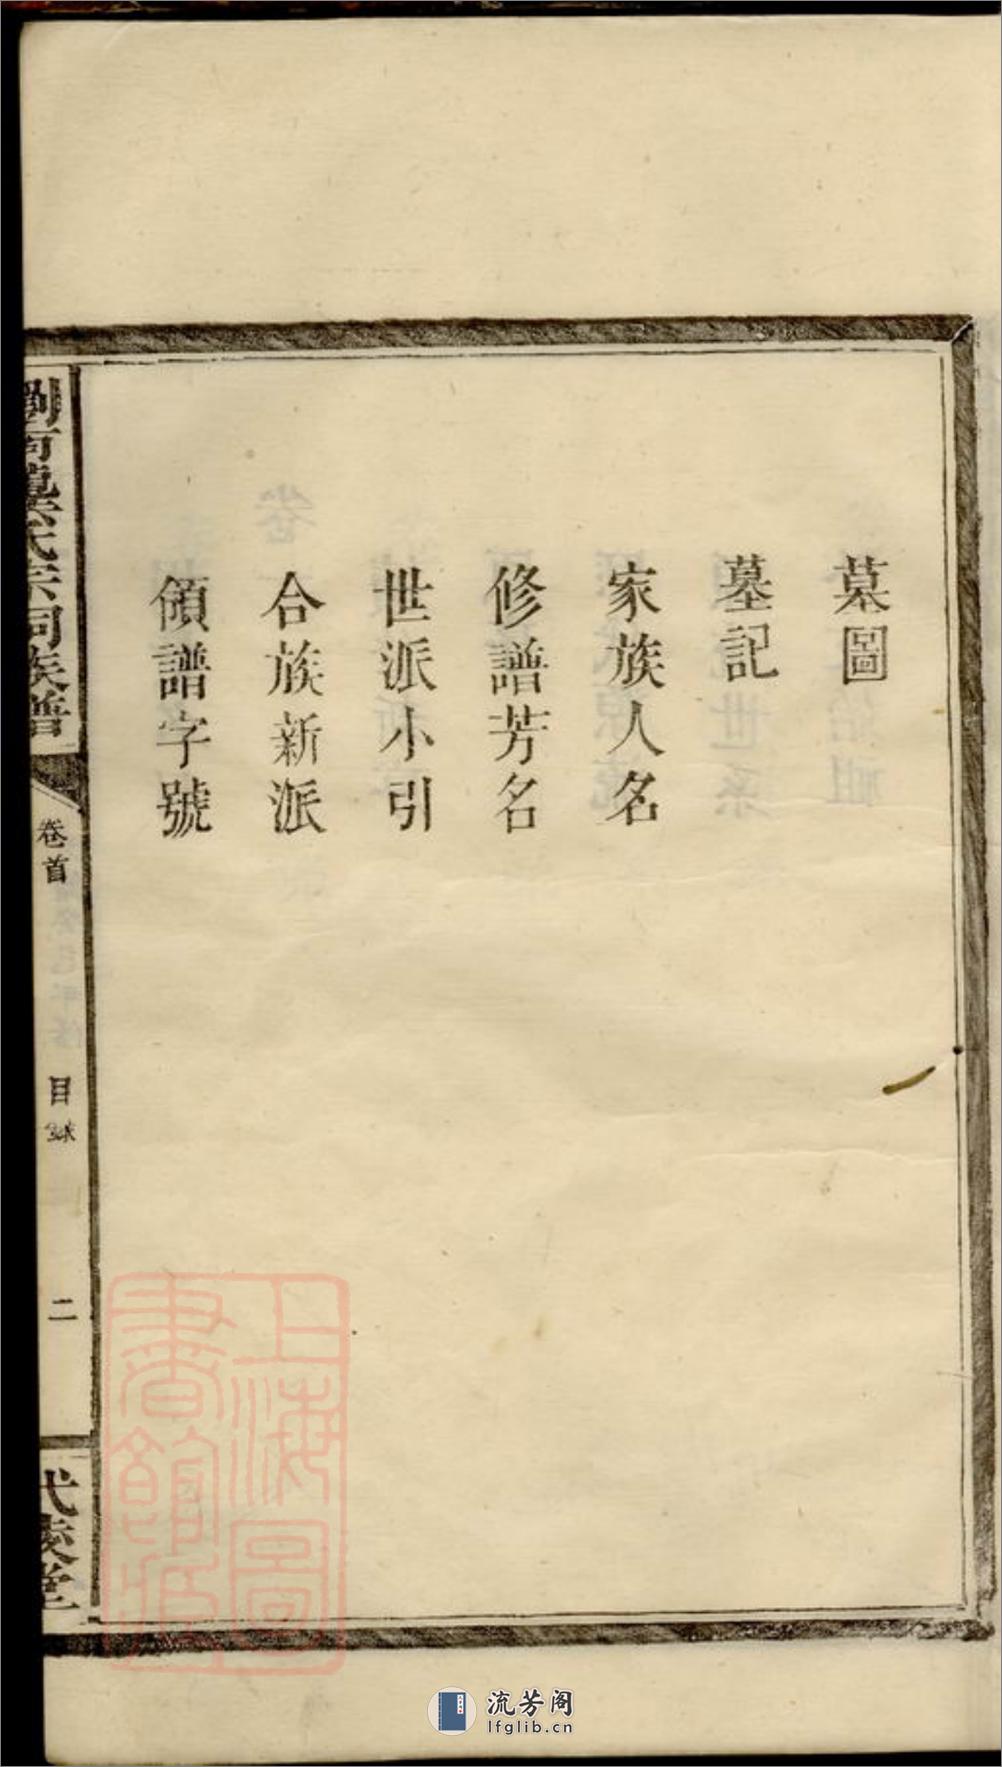 墓圖
墓記
家族人名
修譜芳名
世派小引
合族新派
領譜字號
劉河龔氏宗祠族譜
卷首
目錄
二
上海圖書館藏
流芳阁
lfglib.cn